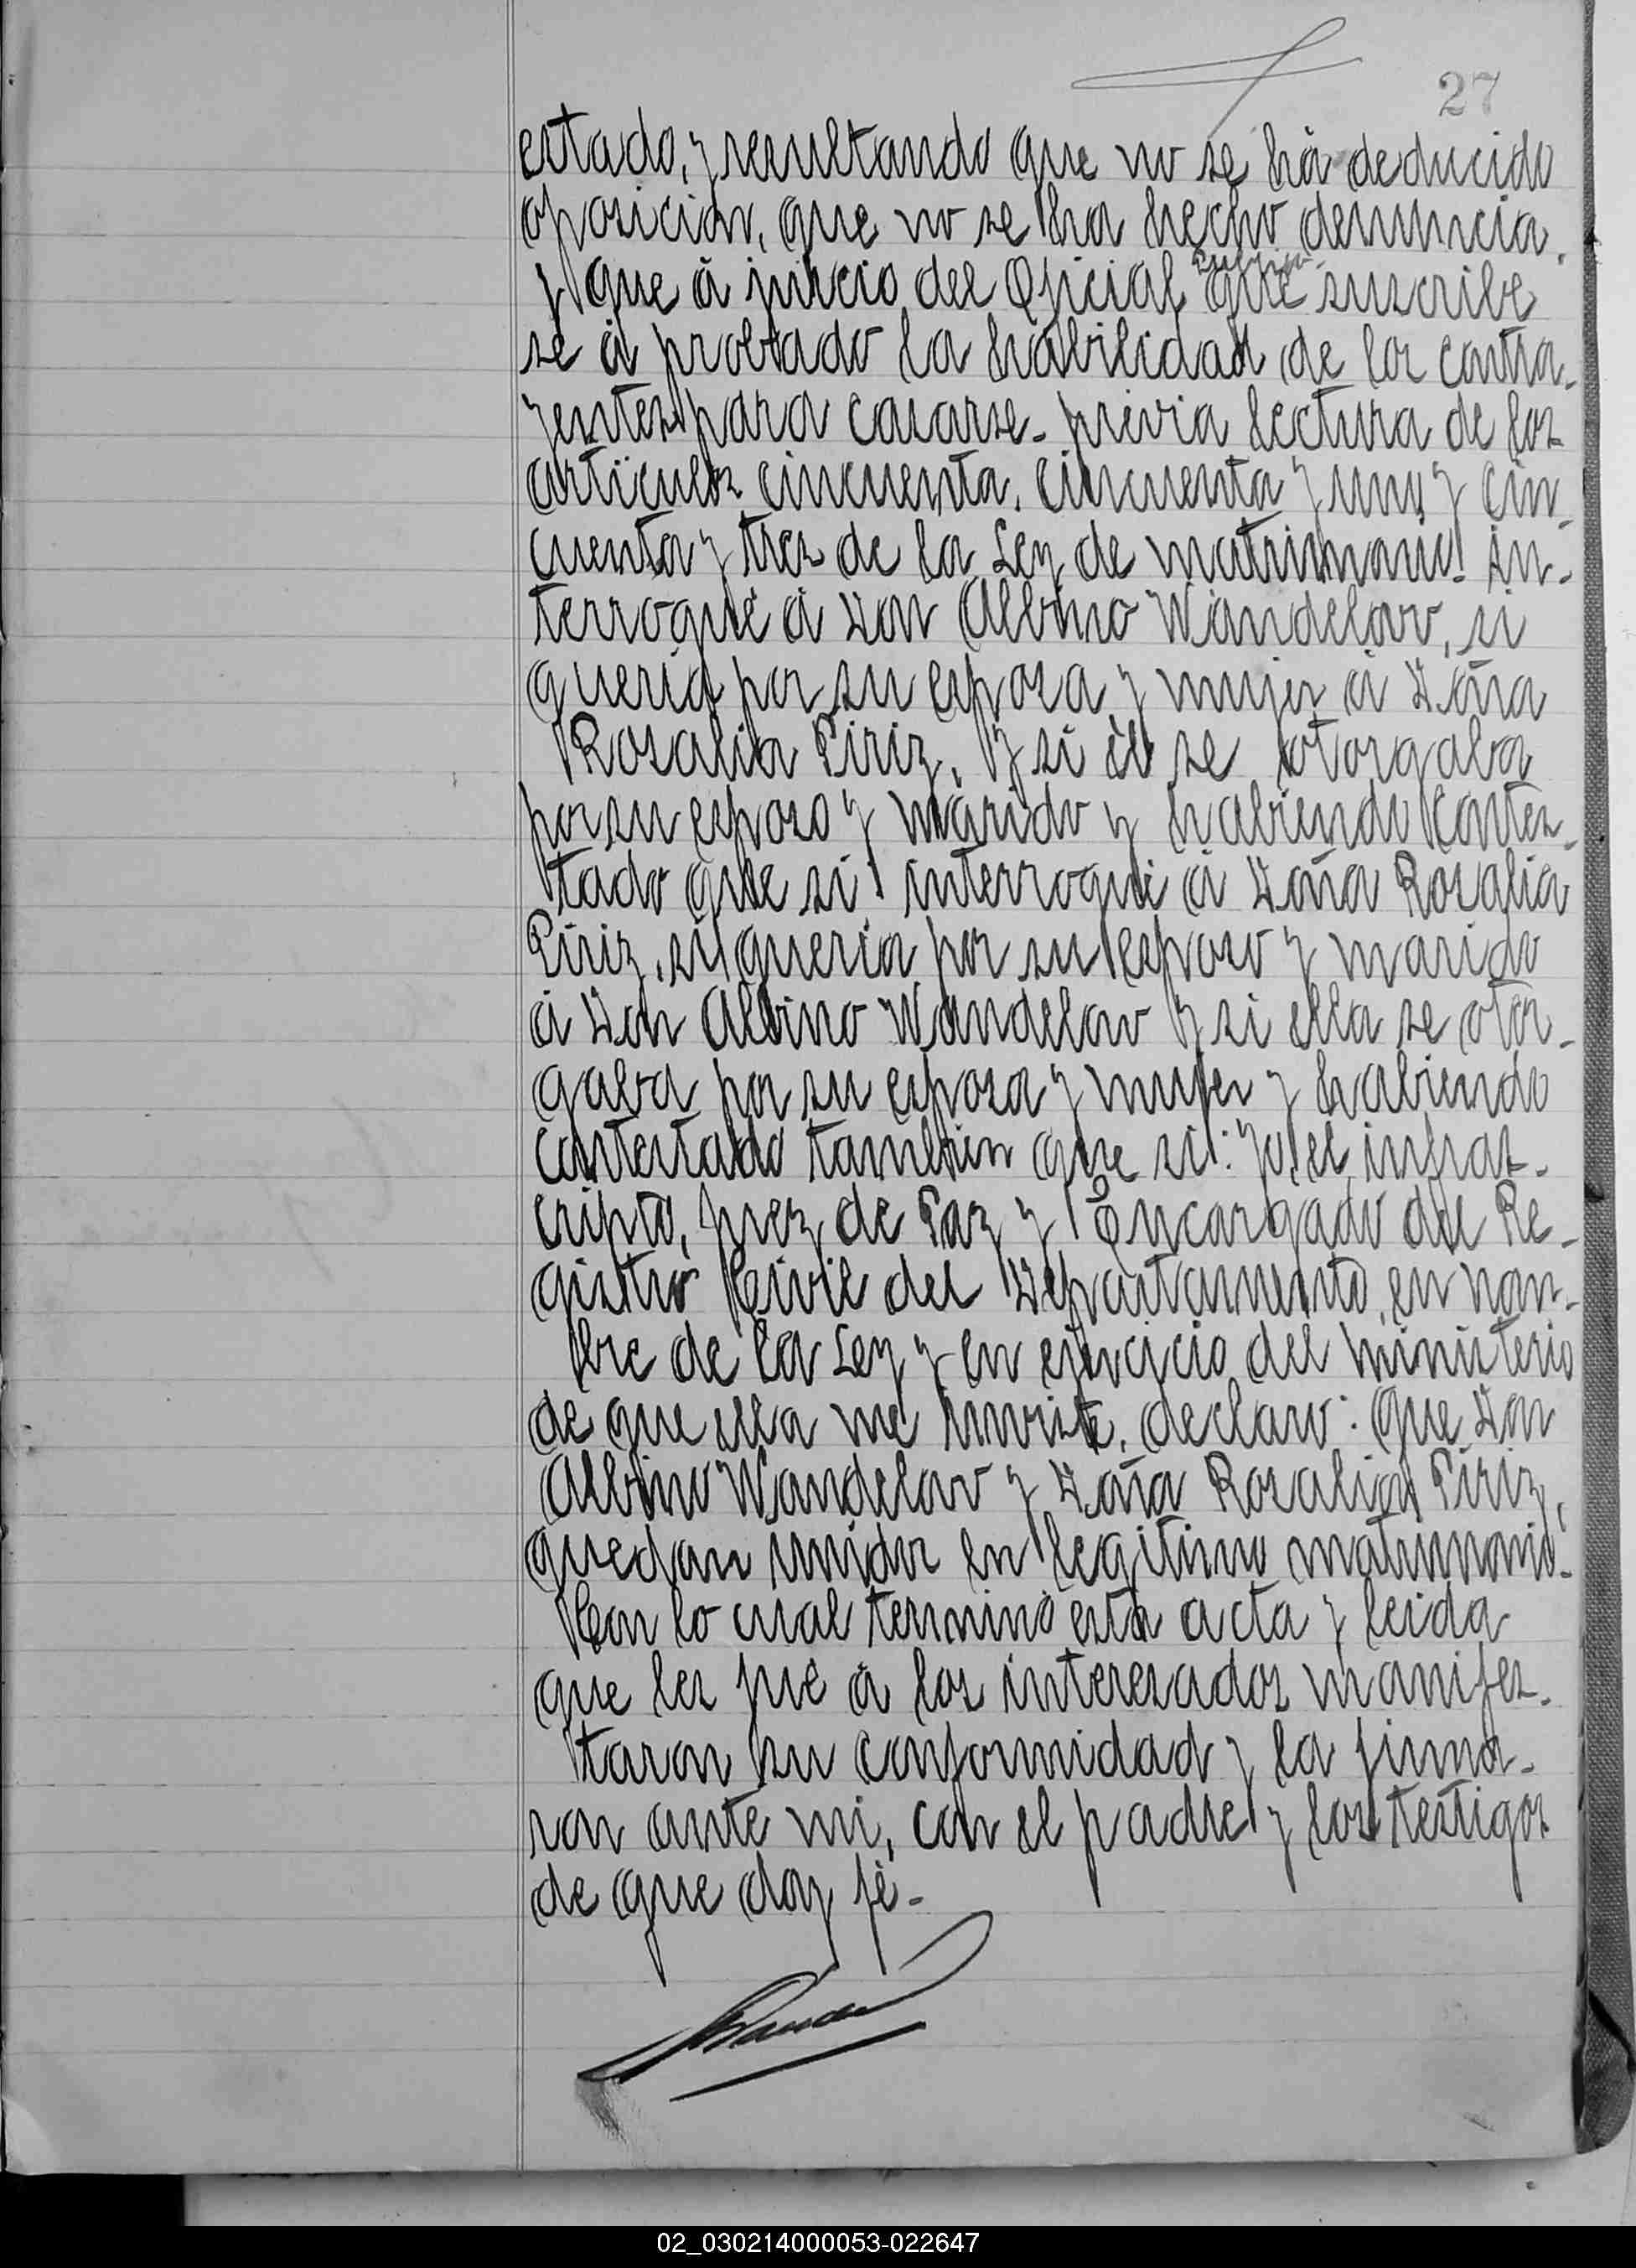 27
estado, y resultando que no se há deducido
oposición, que no se ha hecho denuncia,
y que á juicio del Oficial que suscribe
se á probado la habilidad de los contra-
yentes para casarse. previa lectura de los
artículos cincuenta, cincuenta y uno y cin-
cuenta y tres de la Ley de matrimonio! In-
terrogué á Don Albino Wandelow, si
quería por su esposa y mujer á Doña
Rosalia Piriz, y si él se otorgaba
por su esposo y marido y habiendo contes-
tado que sí! interrogué á Doña Rosalia
Piriz, si quería por su esposo y marido
á Don Albino Wandelow y si ella se otor-
gaba por su esposa y mujer y habiendo
contestado tambien que sí: yo, el infras-
cripto, Juez de Paz y Encargado del Re-
gistro Civil del Departamento, en nom-
bre de la Ley y en ejercicio del ministerio
de que ella me inviste, declaro: que Don
Albino Wandelow y Doña Rosalia Piriz,
quedan unidos en legítimo matrimonio.
Con lo cual terminó esta acta y leida
que les fué á los interesados manifes-
taron su conformidad y la firma-
ron ante mi, con el padre y los testigos
de que doy fé-
02_030214000053-022647